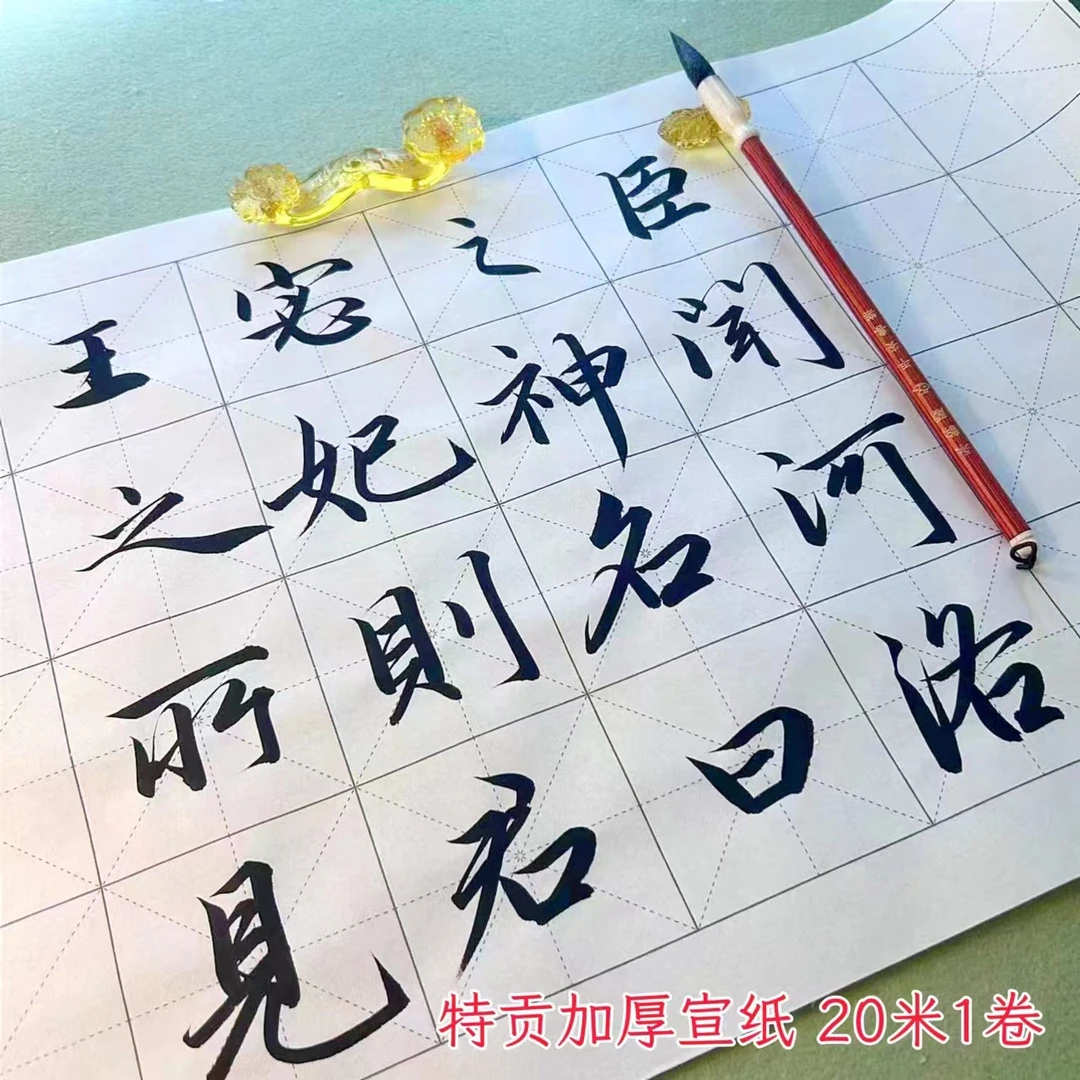 臣聞河洛
之神名曰
宓妃則君
王之所見
特贡加厚宣纸 20米1卷